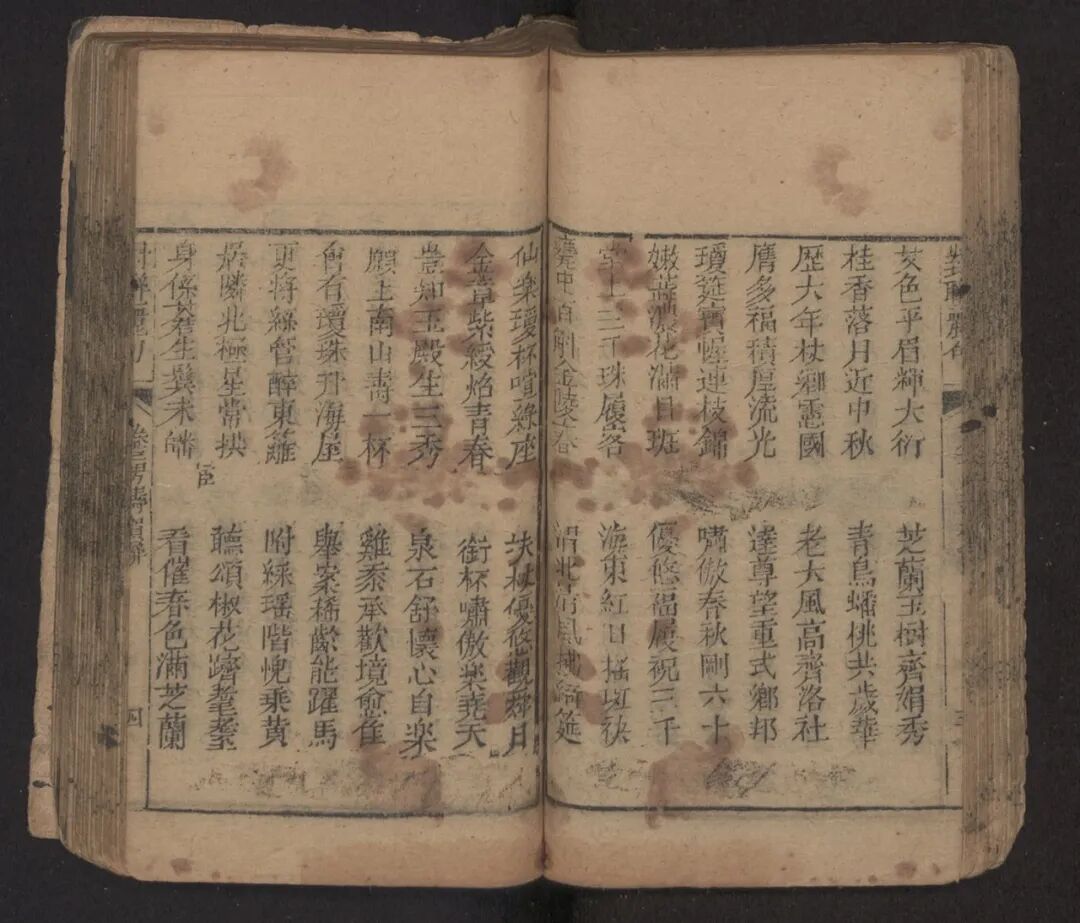 艾色平眉輝大衍
芝蘭玉樹齊娟秀
桂香落月近中秋
青鳥蟠桃共歲華
歷大年杖鄉憲國
老大風高齊洛社
膺多福積厚流光
達尊望重式鄉邦
瓊筵寶幄連枝錦
嘯傲春秋剛六十
嫩蕊濃花滿目班
優悠福履祝三千
堂上三千珠履客
海東紅日搖斑袂
甕中百斛金陵春
渭北清風拂綺筵
仙樂瓊杯喧綠座
扶杖優悠觀舜日
金章紫綬焰青春
銜杯嘯傲樂堯天
豈知玉殿生三秀
泉石舒懷心自樂
願上南山壽一杯
雞黍承歡境愈隹
會有瓊珠升海屋
舉案稀齡能躍馬
更將絲管醉東籬
附綵瑤階悅乘黃
居隣北極星常拱
聽頌椒花躋耄耋
身係蒼生鬢未皤
看催春色滿芝蘭
臣
卷三男壽賀聯
四